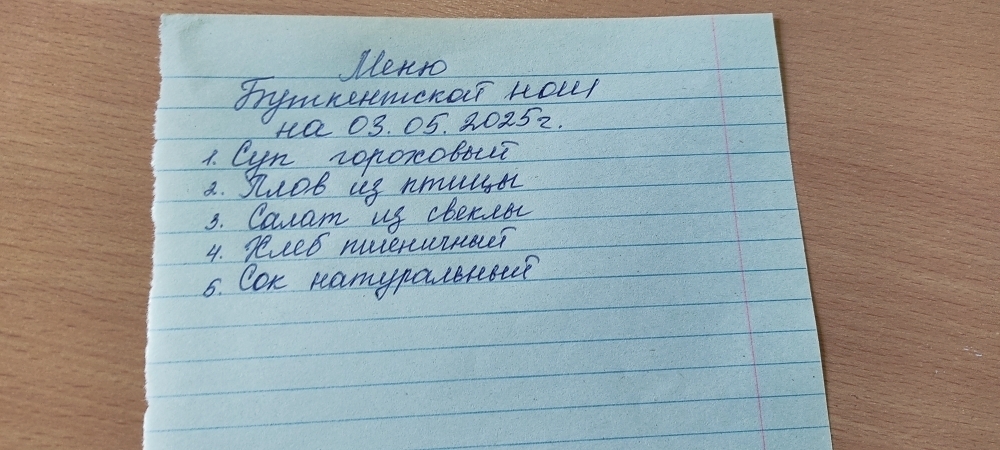 Меню
Буткентской нош
на 03.05.2025г.
1. Суп гороховый
2. Плов из птицы
3. Салат из свеклы
4. Хлеб пшеничный
5. Сок натуральный